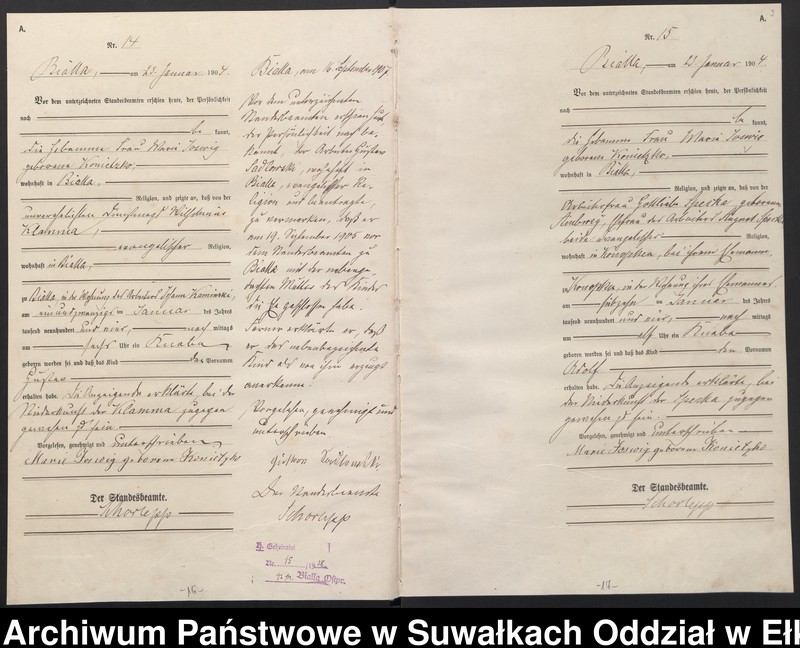 A.
Nr. 14
Bialla, am 23. Januar 1904.
Vor dem unterzeichneten Standesbeamten erschien heute, der Persönlichkeit
nach
be kannt,
die Hebamme Frau Marie Joswig
geborene Konietzko,
wohnhaft in Bialla,
Religion, und zeigte an, daß von der
unverehelichten Dienstmagd Wilhelmine
Klamma,
evangelischer Religion,
wohnhaft in Bialla,
zu Bialla, in der Wohnung des Arbeiters Kaminski,
am einundzwanzigsten Januar des Jahres
tausend neunhundert und vier, nach mittags
um sechs Uhr ein Knabe
geboren worden sei und daß das Kind den Vornamen
Gustav
erhalten habe. Die Anzeigende erklärte, bei der
Niederkunft der Klamma zugegen
gewesen zu sein.
Vorgelesen, genehmigt und unterschrieben
Marie Joswig geborene Konietzko
Der Standesbeamte.
Schorlepp
Bialla, am 16. September 1907.
Vor dem unterzeichneten
Standesbeamten erschien heute
der Persönlichkeit nach be-
kannt, der Arbeiter Gustav
Sadlowski, wohnhaft in
Bialla, evangelischer Re-
ligion und beantragte,
zu vermerken, daß er
am 19. September 1905 vor
dem Standesbeamten zu
Bialla mit der nebenge-
dachten Mutter des Kindes
die Ehe geschlossen habe.
Ferner erklärte er, daß
er das nebenbezeichnete
Kind als von ihm erzeugt
anerkenne.
Vorgelesen, genehmigt und
unterschrieben
Gustav Sadlowski
Der Standesbeamte
Schorlepp
Geheiratet
Nr. 15
Bialla Ostpr.
-16-
A.
Nr. 15
Bialla, am 23. Januar 1904.
Vor dem unterzeichneten Standesbeamten erschien heute, der Persönlichkeit
nach
be kannt,
die Hebamme Frau Marie Joswig
geborene Konietzko,
wohnhaft in Bialla,
Religion, und zeigte an, daß von der
Arbeiterfrau Gottliebe Speska, geborenen
Ehefrau des Arbeiters August Speska
beide evangelischer Religion,
wohnhaft in Konopken, bei ihrem Ehemanne,
Konopken, in der Wohnung ihres Ehemannes
am Januar des Jahres
tausend neunhundert und vier, nach mittags
um elf Uhr ein Knabe
geboren worden sei und daß das Kind den Vornamen
Adolf
erhalten habe. Die Anzeigende erklärte, bei
der Niederkunft der Speska zugegen
gewesen zu sein.
Vorgelesen, genehmigt und unterschrieben
Marie Joswig geborene Konietzko
Der Standesbeamte.
Schorlepp
-17-
Archiwum Państwowe w Suwałkach Oddział w Ełk